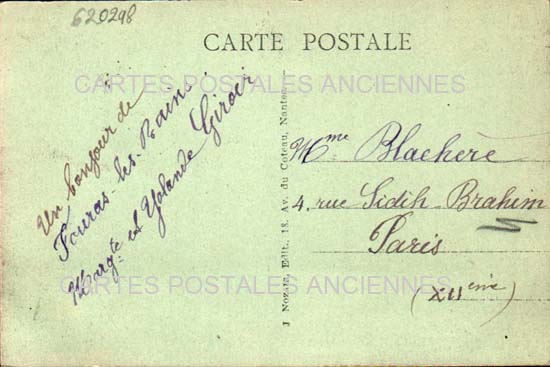 620298
CARTE POSTALE
CARTES POSTALES ANCIENNES
Un bonjour de
Fouras-les-Bains.
Margte et Yolande Giroir
J. Nozais, Edit., 18, Av. du Coteau, Nantes
Mme Blachère
4. rue Sidih-Brahim
Paris
(XIIeme)
CARTES POSTALES ANCIENNES